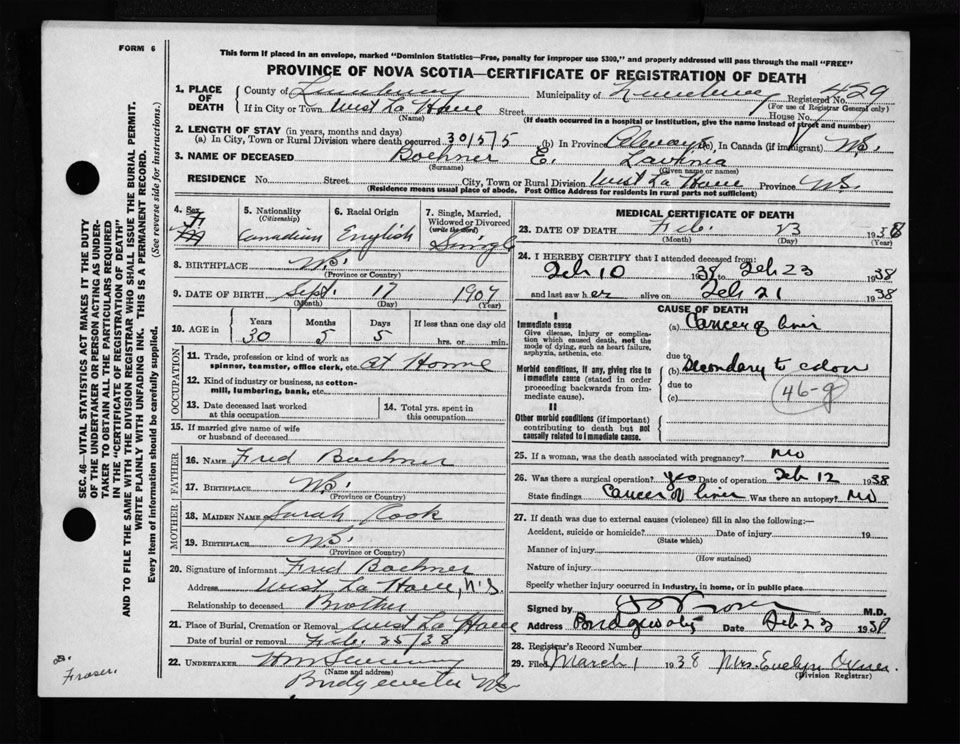 FORM 6
This form if placed in an envelope, marked "Dominion Statistics—Free, penalty for improper use $300," and properly addressed will pass through the mail "FREE"
PROVINCE OF NOVA SCOTIA—CERTIFICATE OF REGISTRATION OF DEATH
1. PLACE OF DEATH County of Lunenburg Municipality of Lunenburg Registered No. 429
(For use of Registrar General only)
If in City or Town West La Have Street House No.
(Name) (If death occurred in a hospital or institution, give the name instead of street and number)
2. LENGTH OF STAY (in years, months and days)
(a) In City, Town or Rural Division where death occurred 30/5/5 (b) In Province Always (c) In Canada (if immigrant) N.S.
3. NAME OF DECEASED Boehner E. Lavinia
(Surname) (Given name or names)
RESIDENCE No. Street City, Town or Rural Division West La Have Province N.S.
(Residence means usual place of abode. Post Office Address for residents in rural parts not sufficient)
4. Sex F
5. Nationality (Citizenship) Canadian
6. Racial Origin English
7. Single, Married, Widowed or Divorced (write the word) Single
8. BIRTHPLACE N.S.
(Province or Country)
9. DATE OF BIRTH Sept. 17 1907
(Month) (Day) (Year)
10. AGE in Years Months Days If less than one day old
30 5 5 hrs. or min.
OCCUPATION
11. Trade, profession or kind of work as spinner, teamster, office clerk, etc. At Home
12. Kind of industry or business, as cotton-mill, lumbering, bank, etc.
13. Date deceased last worked at this occupation
14. Total yrs. spent in this occupation
15. If married give name of wife or husband of deceased
FATHER
16. NAME Fred Boehner
17. BIRTHPLACE N.S.
(Province or Country)
MOTHER
18. MAIDEN NAME Sarah Cook
19. BIRTHPLACE N.S.
(Province or Country)
20. Signature of informant Fred Boehner
Address West La Have, N.S.
Relationship to deceased Brother
21. Place of Burial, Cremation or Removal West La Have
Date of burial or removal Feb. 25/38
22. UNDERTAKER Wm Sweeney
(Name and address)
Bridgewater N.S.
MEDICAL CERTIFICATE OF DEATH
23. DATE OF DEATH Feb. 23 1938
(Month) (Day) (Year)
24. I HEREBY CERTIFY that I attended deceased from:
Feb 10 1938 to Feb 23 1938
and last saw her alive on Feb 21 1938
CAUSE OF DEATH
I
Immediate cause
Give disease, injury or complication which caused death, not the mode of dying, such as heart failure, asphyxia, asthenia, etc.
(a) Cancer of liver
due to
Morbid conditions, if any, giving rise to immediate cause (stated in order proceeding backwards from immediate cause).
(b) secondary to colon
due to
(c) 46-g
II
Other morbid conditions (if important) contributing to death but not causally related to immediate cause.
25. If a woman, was the death associated with pregnancy? No
26. Was there a surgical operation? yes Date of operation Feb 12 1938
State findings Cancer of liver Was there an autopsy? No
27. If death was due to external causes (violence) fill in also the following:—
Accident, suicide or homicide? Date of injury 19
(State which)
Manner of injury
(How sustained)
Nature of injury
Specify whether injury occurred in industry, in home, or in public place
Signed by M.D.
Address Bridgewater Date Feb 23 1938
28. Registrar's Record Number
29. Filed March 1 1938 Mrs. Evelyn
(Division Registrar)
SEC. 46—VITAL STATISTICS ACT MAKES IT THE DUTY
OF THE UNDERTAKER OR PERSON ACTING AS UNDER-
TAKER TO OBTAIN ALL THE PARTICULARS REQUIRED
IN THE "CERTIFICATE OF REGISTRATION OF DEATH"
AND TO FILE THE SAME WITH THE DIVISION REGISTRAR WHO SHALL ISSUE THE BURIAL PERMIT.
WRITE PLAINLY WITH UNFADING INK. THIS IS A PERMANENT RECORD.
Every item of information should be carefully supplied.
(See reverse side for instructions.)
Fraser.